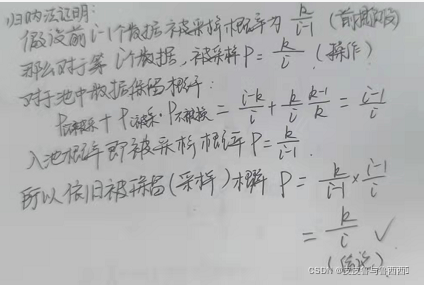 归纳法证明:
假设前i-1个数据被采样概率为 k/i-1 (前期假设)
那么对于第i个数据,被采样P= k/i (操作)
对于池中数据保留概率:
Pi未被采 + Pi被采·P不被换 = i-k/i + k/i k-1/k = i-1/i
入池概率即被采样概率P= k/i-1
所以依旧被保留(采样)概率 P= k/i-1 × i-1/i
= k/i ✓
CSDN @